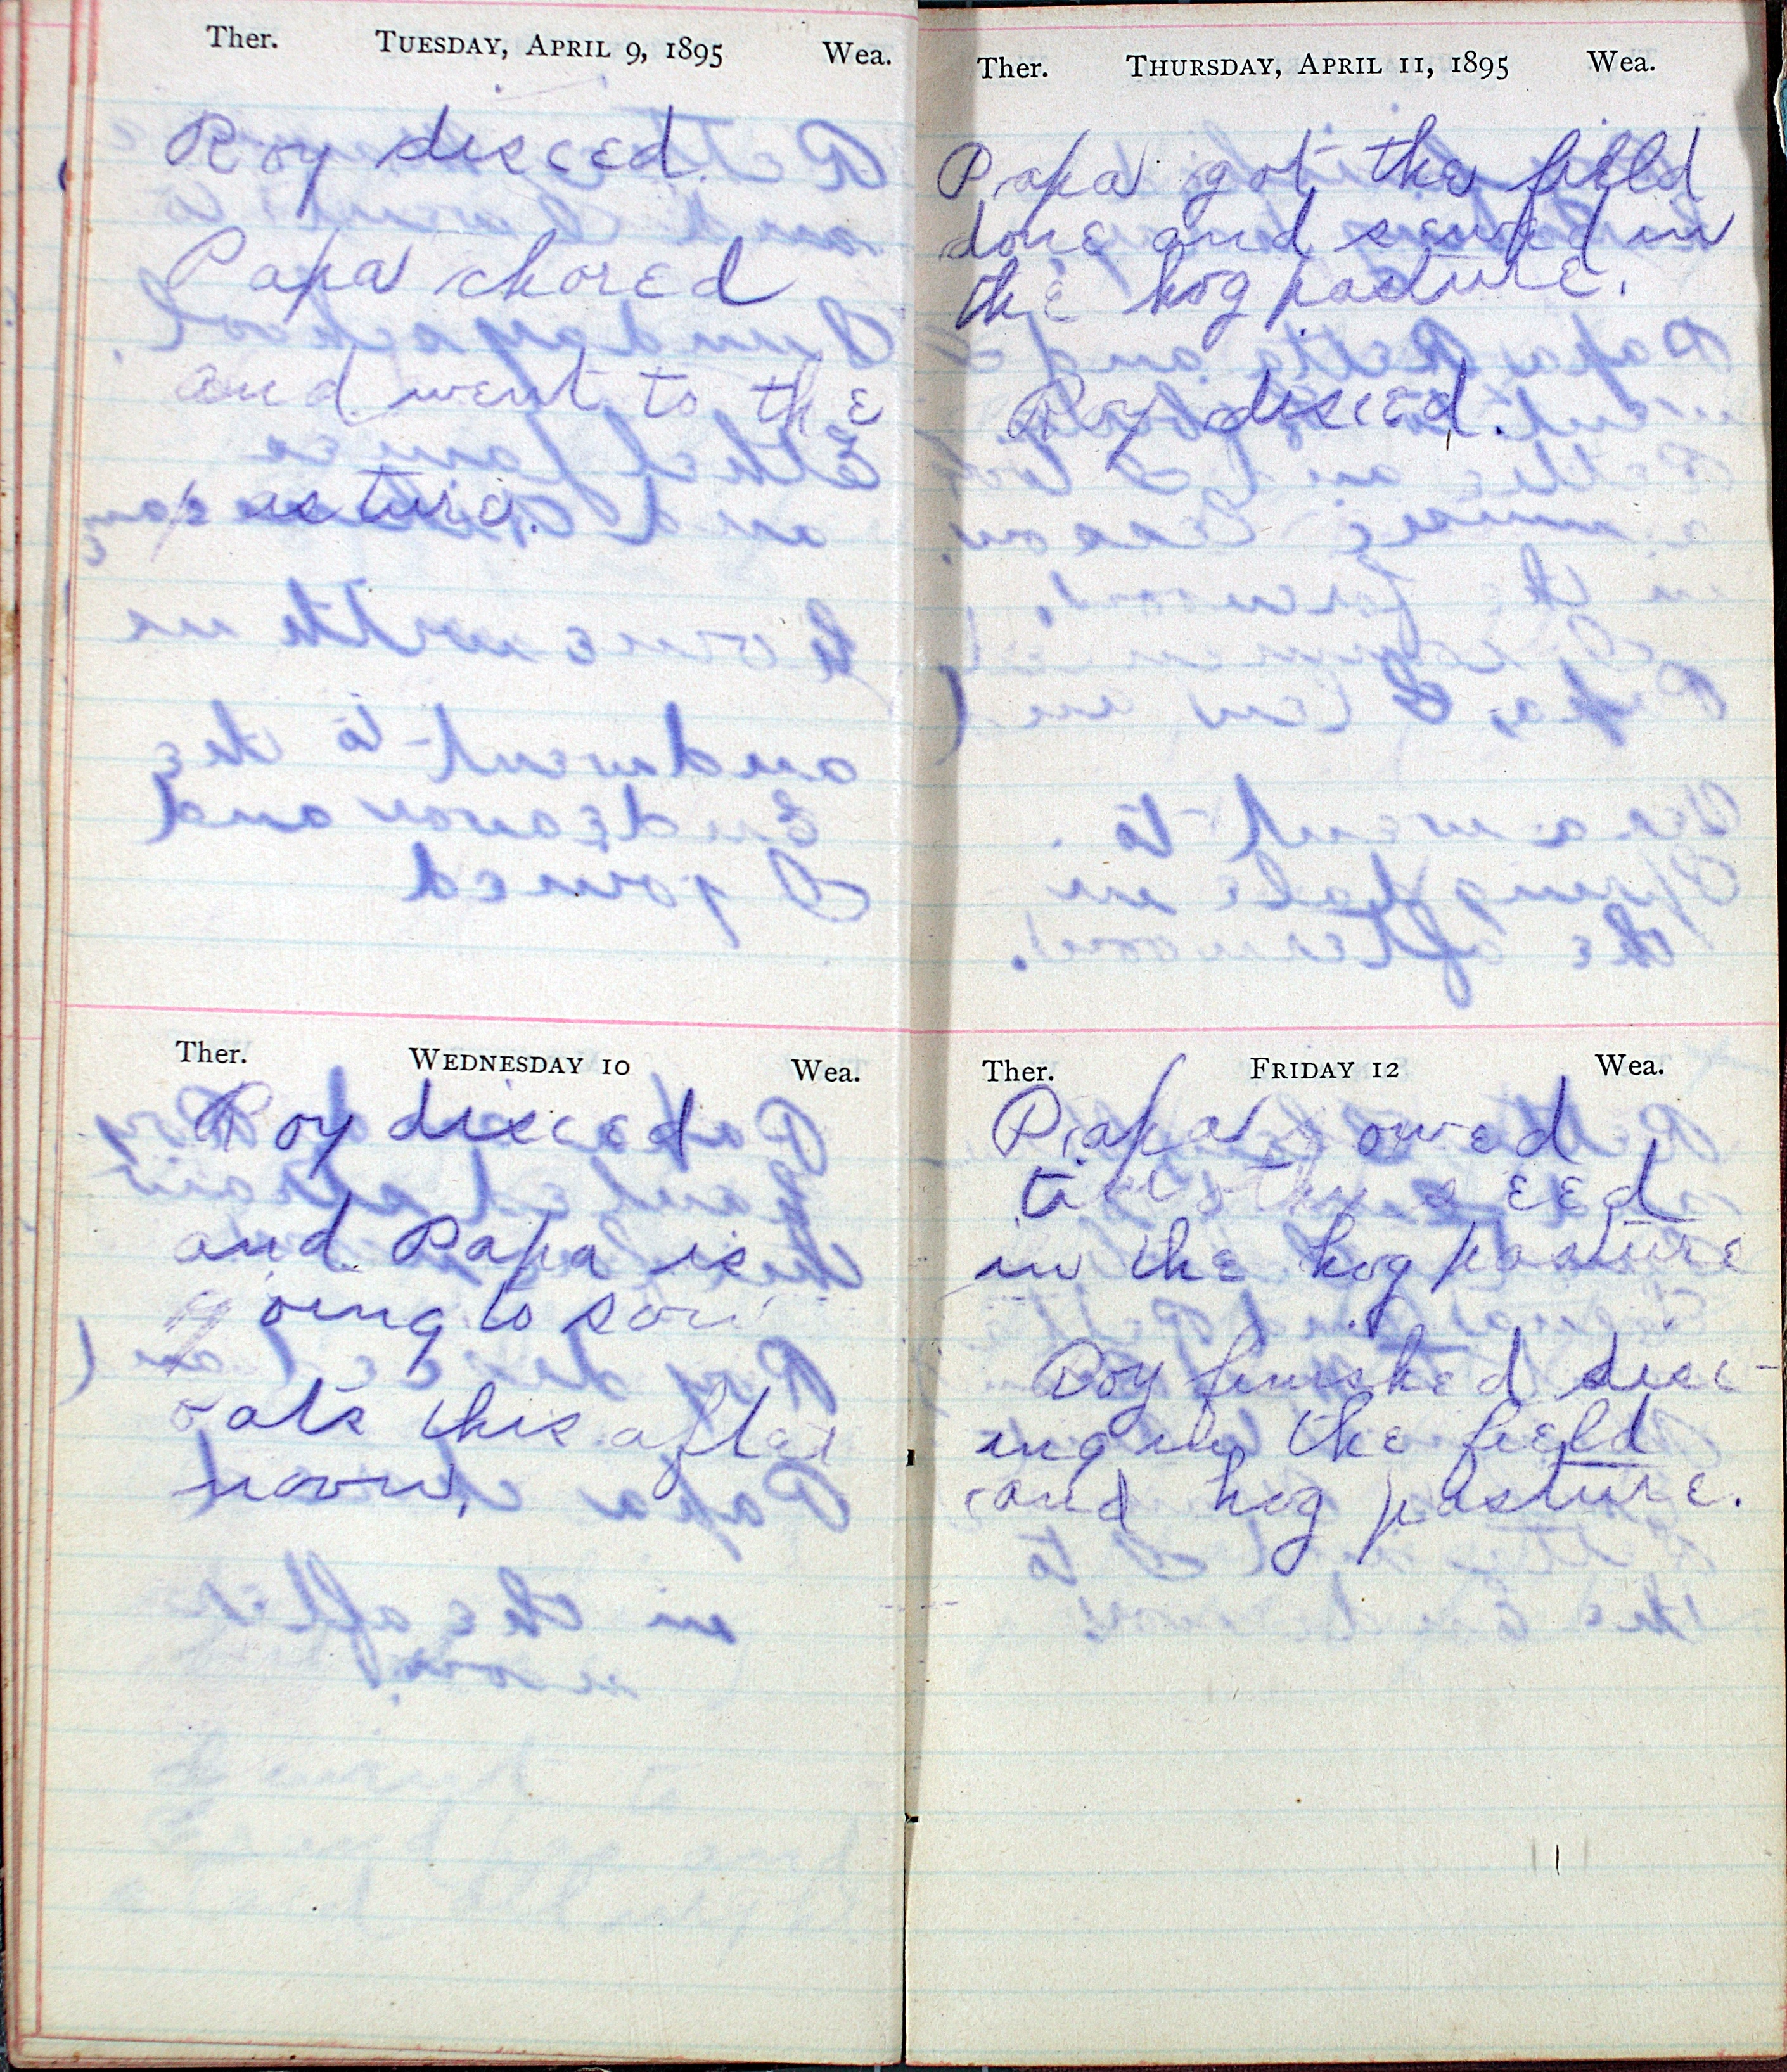 Ther. TUESDAY, APRIL 9, 1895 Wea.
Roy disced.
Papa chored
and went to the
pasture.
Ther. WEDNESDAY 10 Wea.
Roy disced
and Papa is
going to sow
oats this after
noon.
Ther. THURSDAY, APRIL 11, 1895 Wea.
Papa got the field
done and sewed in
the hog pasture.
Roy disced.
Ther. FRIDAY 12 Wea.
Papa sowed
seed
in the hog pasture
Roy finished disc-
ing in the field
and hog pasture.